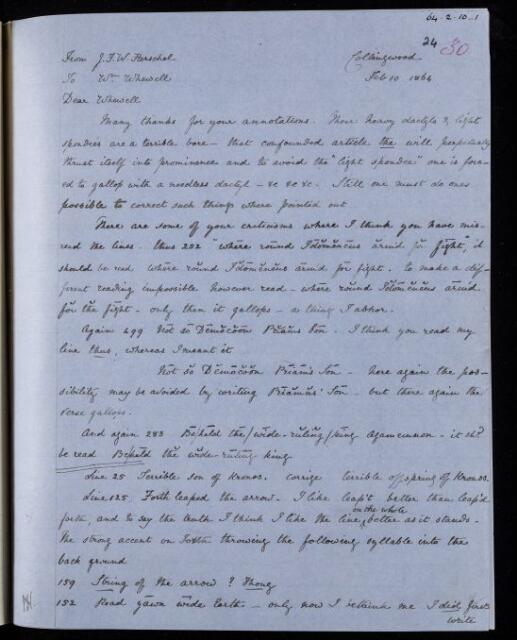 64-2-10-1
24 50
From J.F.W. Herschel Collingwood
To Wm Whewell Feb 10 1864
Dear Whewell
Many thanks for your annotations. Those heavy dactyls & light
spondees are a terrible bore - that confounded article the will perpetually
thrust itself into prominence and to avoid the "light spondee" one is forc-
ed to gallop with a needless dactyl - &c &c &c. Still one must do ones
possible to correct such things where pointed out
There are some of your criticisms where I think you have mis-
read the lines. thus 252 "where round Idomeneus arm'd for fight", it
should be read where round Idomeneus arm'd for fight. to make a dif-
ferent reading impossible however read - where round Idomeneus arm'd
for the fight - only then it gallops - a thing I abhor.
Again 499 Not so Democoon Priam's Son. I think you read my
line thus, whereas I meant it
Not so Democoon Priam's Son - here again the pos-
sibility may be avoided by writing Priamus' Son - but there again the
verse gallops.
And again 283 Beheld the/wide-ruling/king Agamemnon - it shd.
be read Beheld the wide-ruling king
Line 25 Terrible son of Kronos. corrige terrible offspring of Kronos.
Line 125. Forth leaped the arrow. I like leap't better than leap'd
forth, and to say the truth I think I like the line on the whole better as it stands.
the strong accent on Forth throwing the following syllable into the
back ground
159 String of the arrow? Thong
152 Read yawn wide Earth - only now I rethink me I did first
write